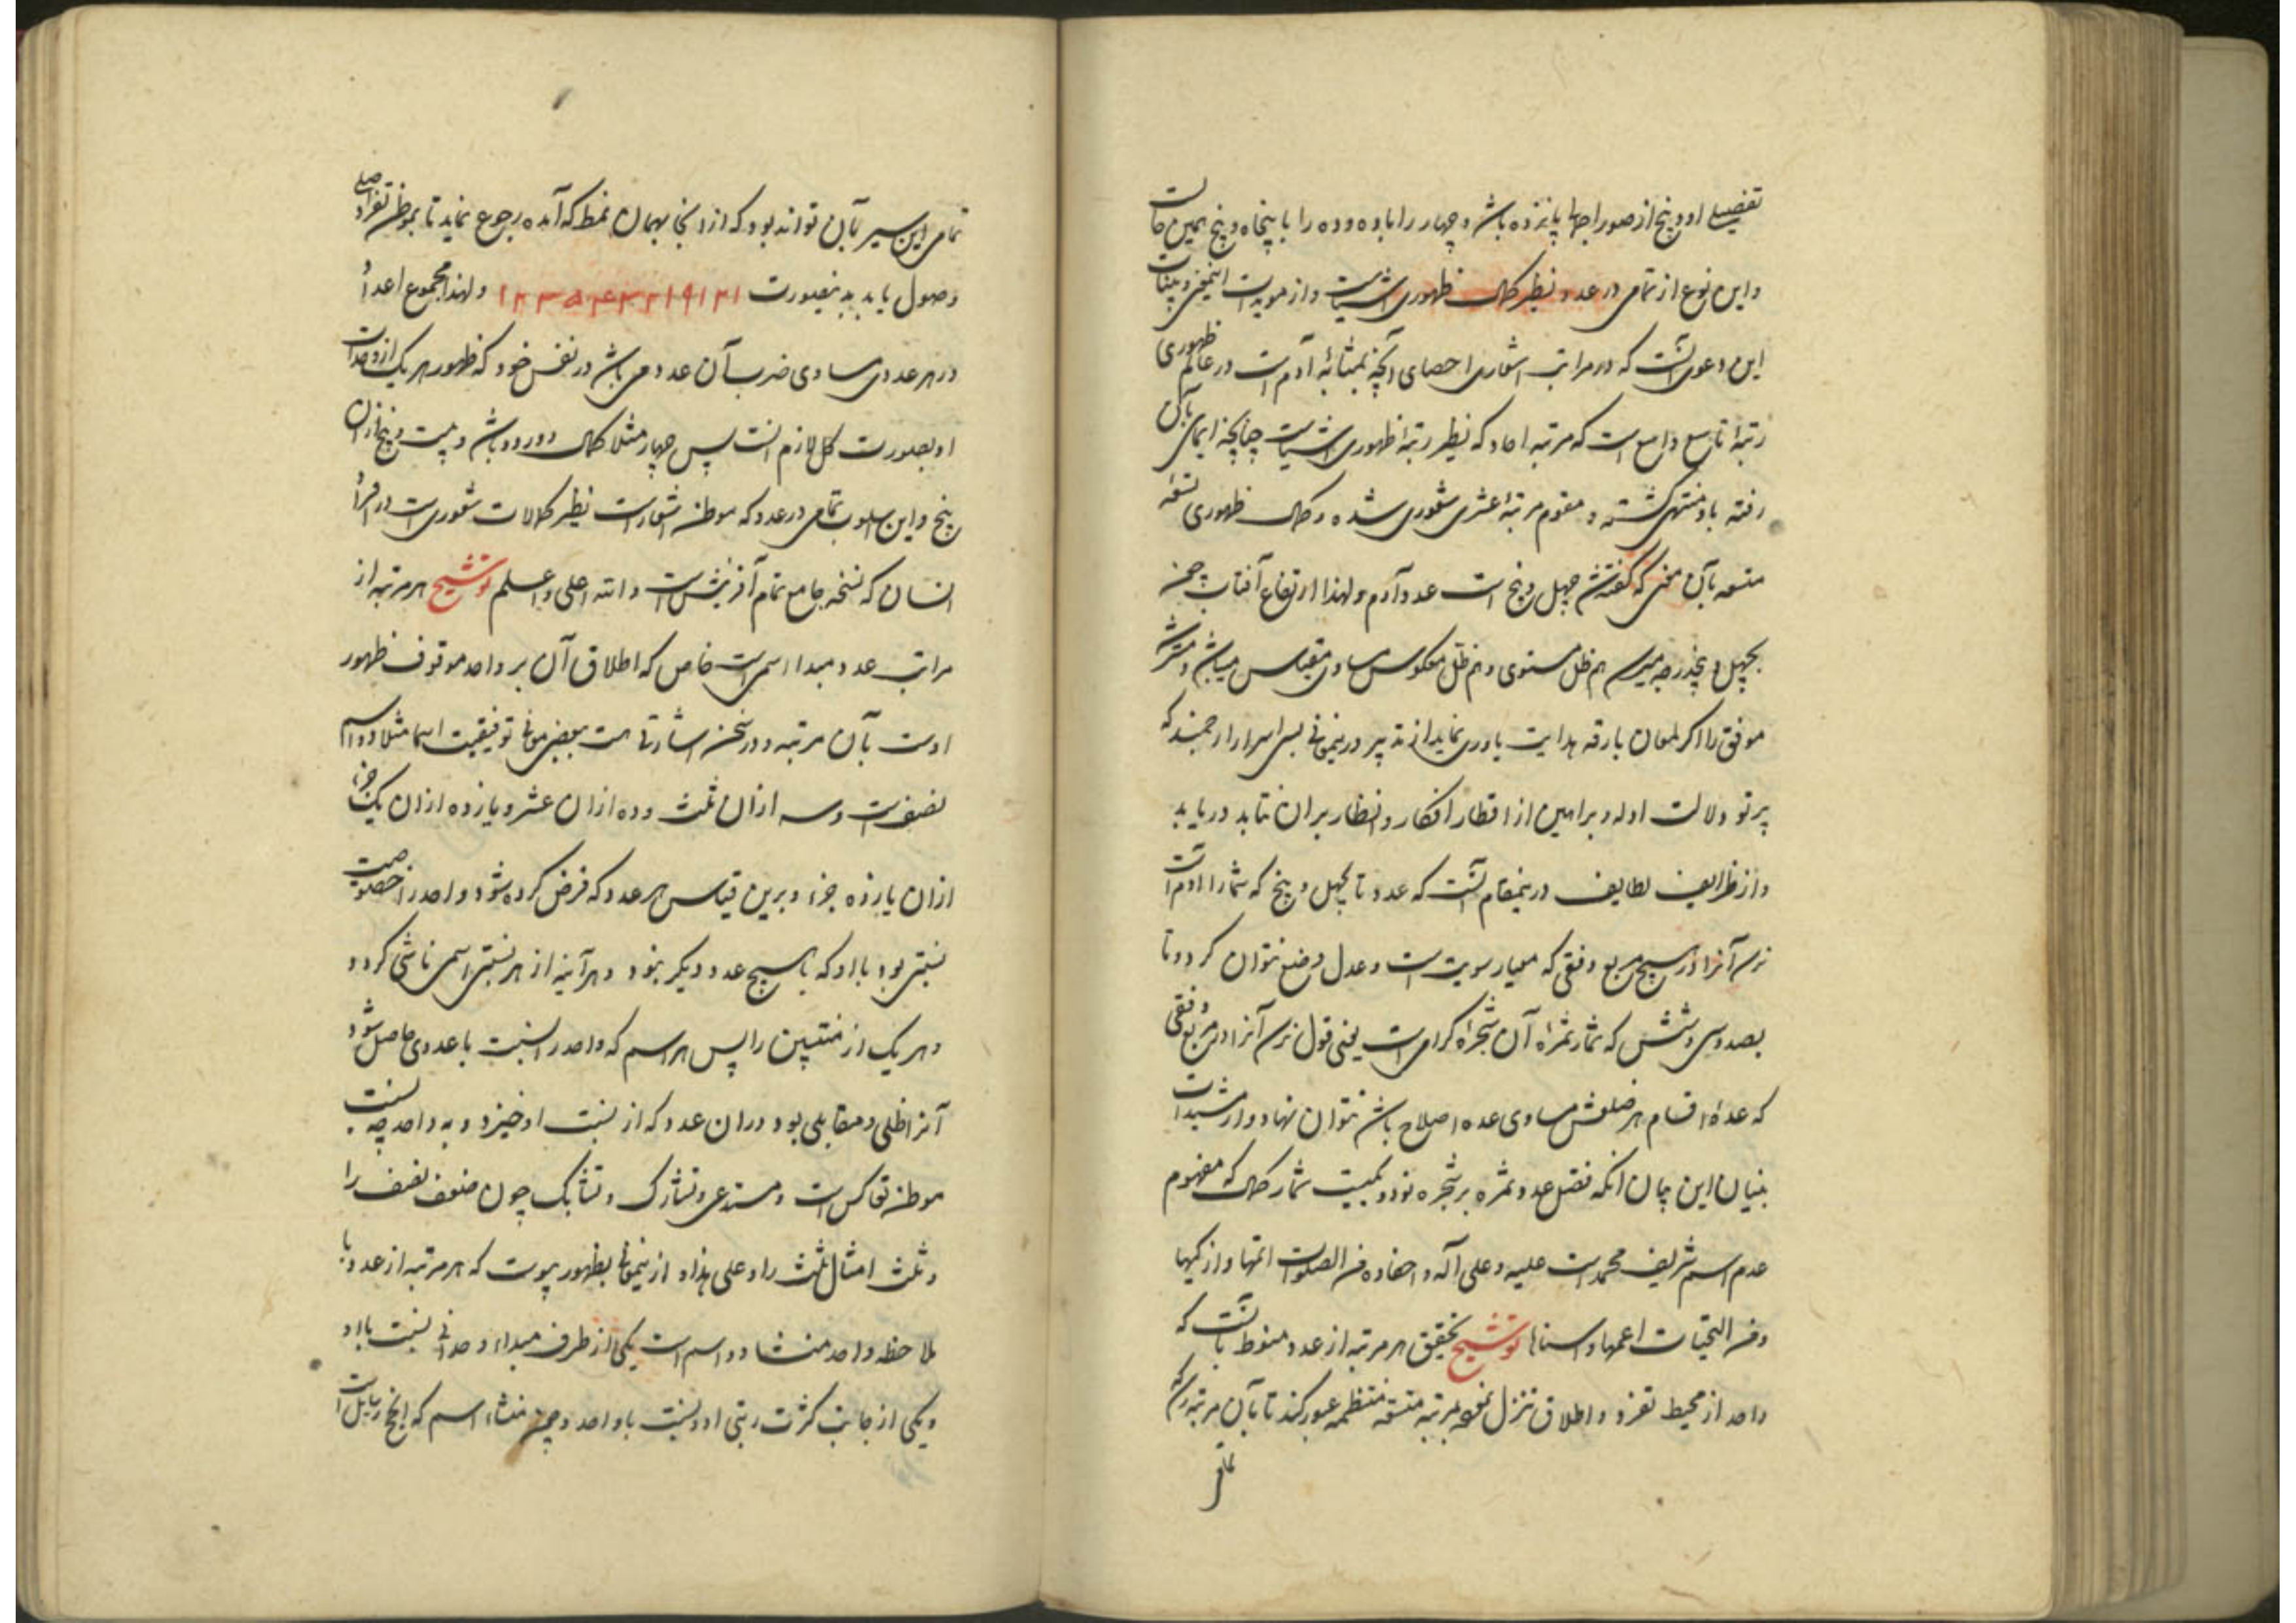 تفصیلی او و پنج از صور اجمالها پانزده باشد و چهار را با ده و ده را با پنجاه و پنج همین حالت
و این نوع از تمامی در عدد نظیر کمال ظهوری اشیاست و از مویدات
این دعوی آنست که در مراتب شعاری احصای آنچه بمثابهٔ آدم است در عالم ظهوری
رتبهٔ تاسع واقع است که مرتبه احاد که نظیر رتبهٔ ظهوری اشیاست چنانچه ایمای بآن
رفته باو منتهی گشته و مقوم مرتبهٔ عشری شعوری شده و کمال ظهوری
متسعه بآن معنی که گفته شد چهل و پنج است عدد آدم و لهذا ارتفاع آفتاب چون
بچهل و پنجدرجه میرسد هم ظل مستوی و هم ظل معکوس مساوی مقیاس میباشد
موفق را اگر لمعان بارقه هدایت یاوری نماید از تدبر درینمعانی بسی اسرار ارجمند که
پرتو دلالت ادله و براهین از اقطار افکار و انظار بران نتابد دریابد
و از ظرایف لطایف درینمقام آنست که عدد تا بچهل و پنج که شمار آدم است
نرسد آنرا در هیچ مربع وفقی که معیار سویت است و عدل وضع نتوان کرد و تا
بصد و سی و شش که شمار ثمرهٔ آن شجرهٔ گرامی است یعنی قول نرسد آنرا در مربع وفقی
که عدهٔ اقسام هر ضلعش مساوی عده اضلاع باشد نتوان نهاد و از مشیدات
بنیان این بیان آنکه فضل عدد ثمره بر شجره نود و یکیست شمار کمال که مفهوم
عدم اسم شریف محمد است علیه و علی آله و احفاده من الصلوات اتمها و ازکیها
و من التحیات اعمها و اسناها توشیح تحقیق هر مرتبه از عدد منوط بآنست که
واحد از محیط تفرد و اطلاق تنزل نموده بر مرتبه متسقه منتظمه عبور کند تا بآن مرتبه رسد
تمامی
تمامی این سیر بآن تواند بود که از انجا بهمان نمط که آمده رجوع نماید تا بموطن تفرد اصلی
وصول یابد بدینصورت ۱۲۳۵۴۳۲۱۹۱۲۱ و لهذا مجموع اعداد
در هر عددی مساوی ضرب آن عدد می باشد در نفس خود که ظهور هر یک از وحدات
او بصورت کل لازم آنست پس چهار مثلا کمال دور دو باشد و بیست و پنج از ان
پنج و این اسلوب تمامی در عدد که موطن شعار است نظیر کمالات شعوری است در افراد
انسان که نسخه جامع تمام آفرینش است و الله اعلی و اعلم توشیح هر مرتبه از
مراتب عدد مبدا اسمی است خاص که اطلاق آن بر واحد موقوف ظهور
اوست بآن مرتبه و در سخن اشارتی هست ببعضی معانی توقیفیت اسما مثلا دو اسم
نصف است و سه از ان ثلث و ده از ان عشر و یازده از ان یک جزء
از ان یازده جزء و برین قیاس هر عدد که فرض کرده شود واحد را خصوصیت
نسبتی بود با او که با هیچ عدد دیگر نبود و هر آینه از هر نسبتی اسمی ناشی گردد
و هر یک از منتسبین را پس هر اسم که واحد را بنسبت با عددی حاصل شود
آنرا ظلی و مقابلی بود در ان عدد که از نسبت او خیزد و به واحد چه نسبت
موطن تعاکس است و مستدعی و تشارک و تشابک چون ضعف نصف را
و ثلث امثال ثلث را و علی هذا و از ینمعانی بظهور پیوست که هر مرتبه از عدد با
ملاحظه واحد منشا دو اسم است یکی از طرف مبداء وحدانی نسبت باو
و یکی از جانب کثرت رتبی او و نسبت باو واحد و چون منشاء اسم که